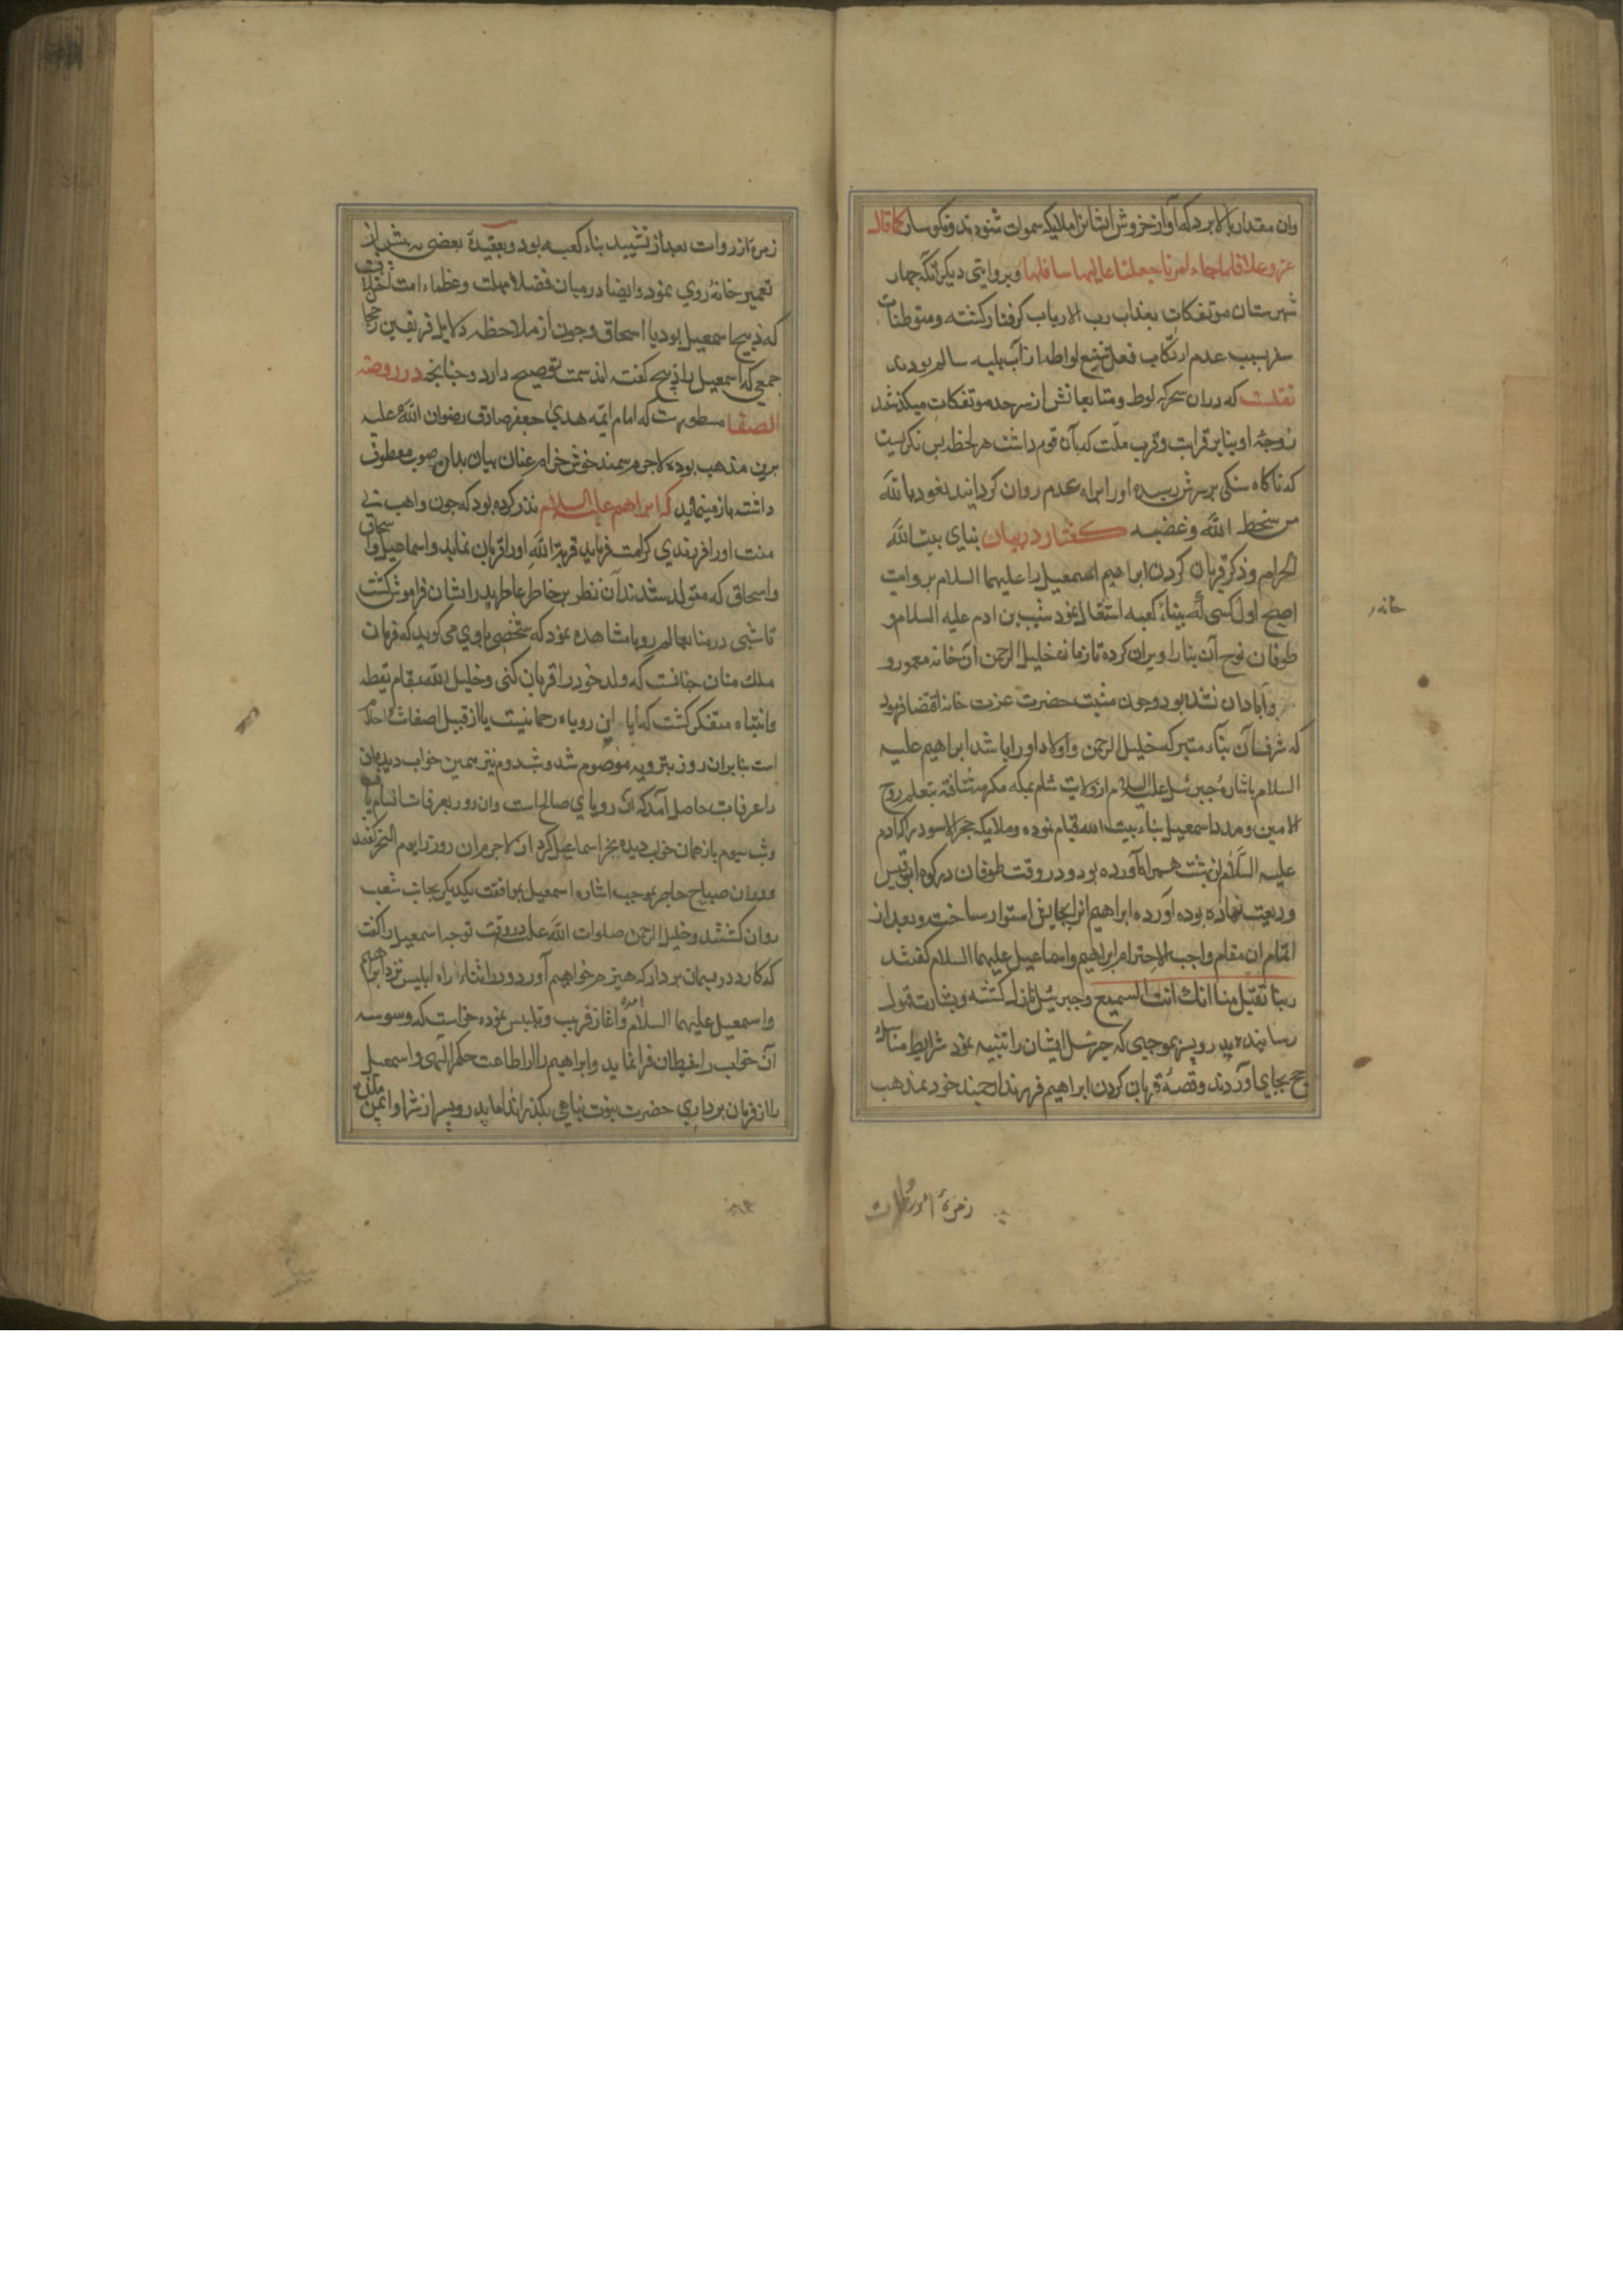 وان مقدار بالا برد که آواز خروش ایشانرا ملایکه سموات شنودند ونکوسار کما قال
عز وعلا فلما جاء امرنا جعلنا عالیها سافلها وبروایتی دیکر آنکه چهار
شهرستان موتفکات بعذاب رب الارباب کرفتار کشته ومتوطنات
بسبب عدم ارتکاب فعل شنیع لواطه از آن بلیه سالم بودند
نقلست که دران سحر که لوط ومتابعانش از سرحد موتفکات میکذشتند
زوجهٔ او بنابر قرابت وقرب ملّت که بآن قوم داشت هر لحظه پس نکریست
که ناکاه سنکی بر سرش رسیده اورا براه عدم روان کردانید نعوذ بالله
من سخط الله وغضبه کفتار در بیان بنای بیت الله
الحرام وذکر قربان کردن ابراهیم اسمعیل را علیهما السلام بروایت
اصح اول کسی که ببناء کعبه اشتغال نمود شیث بن ادم علیه السلام و
طوفان نوح آن بنا را ویران کرده تا زمان خلیل الرحمن آن خانه معمور و
وآبادان نشده بود وچون مشیت حضرت عزت خانه اقتضا فرمود
که شرف آن بناء متبرکه خلیل الرحمن واولاد اورا باشد ابراهیم علیه
السلام باشارهٔ جبرئیل علیه السلام از ولایت شام بمکه مکرمه شتافته بتعلیم روح
الامین ومدد اسمعیل بناء بیت الله قیام نموده وملایکه حجر الاسود را که ادم
علیه السَّلام از بهشت همراه آورده بود ودر وقت طوفان در کوه ابوقبیس
ودیعت نهاده بوده آورده ابراهیم انرا بجایش استوار ساخت وبعد از
اتمام ان مقام واجب الاحترام ابراهیم واسماعیل علیهما السلام کفتند
ربنا تقبّل منا انک انت السمیع وجبرئیل نازل کشته وبشارت قبول
رسانیده پدر وپسر بموجبی که جبرئیل ایشان را تنبیه نمود شرایط مناسک
حج بجای آوردند وقصهٔ قربان کردن ابراهیم فرزند ارجمند خود بمذهب
خانه
زمرهٔ از روات
زمرهٔ از روات بعد از تشیید بناء کعبه بود وبعقیدهٔ بعضی پیشتر از
تعمیر خانه روی نمود وایضا درمیان فضلاء ملت وعظماء امت اختلافست
که ذبیح اسمعیل بود یا اسحاق وچون از ملاحظه دلایل فریقین رجحان
جمعی که اسمعیل را ذبیح کفته اند سمت توضیح دارد وچنانچه در روضه
الصفا مسطورست که امام ایمه هدیٰ جعفر صادق رضوان الله علیه
برین مذهب بوده لاجرم سمند خوش خرام عنان بیان بدان صوب معطوف
داشته باز مینماید که ابراهیم علیه السلام نذر کرده بود که چون واهب بی
منت اورا فرزندی کرامت فرماید قربة الله اورا قربان نماید واسماعیل واسحاق
واسحاق که متولد شدند آن نذر بر خاطر عاطر پدر ایشان فراموش کشت
تا شبی در منا بعالم رویا مشاهده نمود که شخصی باوی می کوید که فرمان
ملک منان چنانست که ولد خود را قربان کنی وخلیل الله بمقام یقظه
وانتباه متفکر کشت که آیا این رویاء رحمانیست یا از قبیل اضغاث احلام
است بنابران روز بترویه موصوم شد وشب دوم نیز همین خواب دیده ان
را عرفات حاصل آمد که ان رویای صالح است وان روز بعرفات اتسام یافت
وشب سیوم باز همان خواب دیده بنحر اسماعیل کرد ان لاجرم ان روز را یوم النحر کفتند
ودران صباح هاجر بموجب اشاره اسمعیل بموافقت یکدیکر بجانب شعب
روان کشتند وخلیل الرحمن صلوات الله علیه در وقت توجه اسمعیل را کفت
که کارد وریسمان بردار که هیزم خواهیم آورد ودر اثناء راه ابلیس نزد ابراهیم
واسمعیل علیهما السلام آمده وآغاز فریب وتلبیس نموده خواست که وسوسه
آن خواب را شیطان فرا نماید وابراهیم را از اطاعت حکم الهی واسمعیل
را از فرمان برداری حضرت نبوت پناهی بکذراند اما پدر وپسر از شر او ایمن